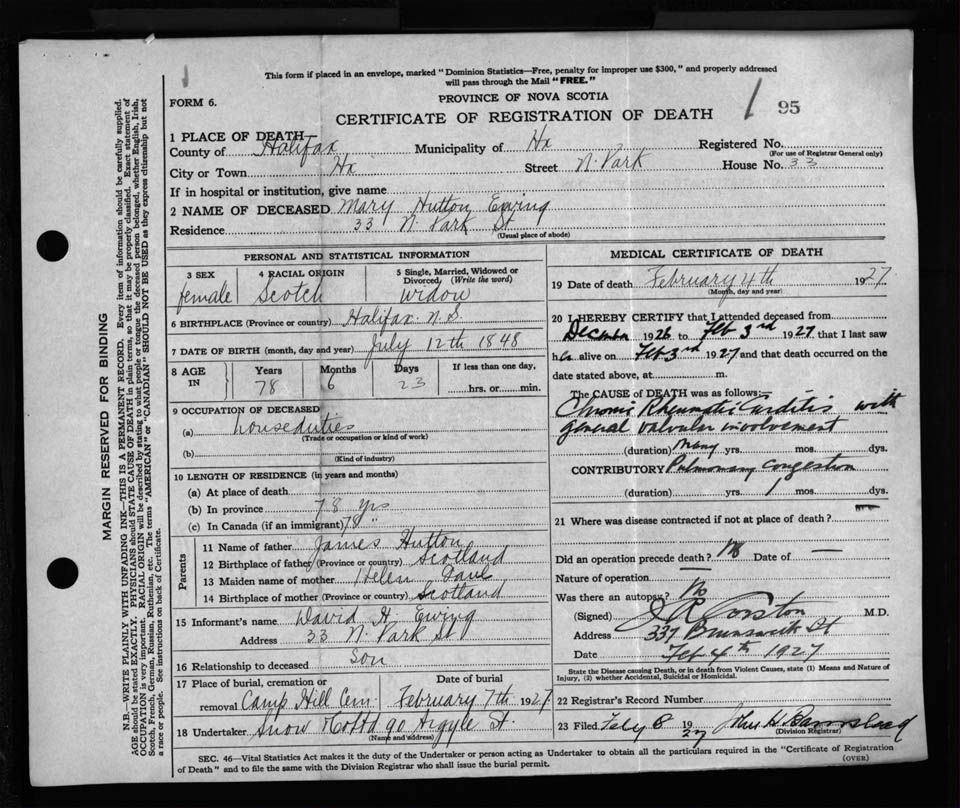 1
This form if placed in an envelope, marked "Dominion Statistics—Free, penalty for improper use $300," and properly addressed
will pass through the Mail "FREE."
FORM 6.
PROVINCE OF NOVA SCOTIA
1 95
CERTIFICATE OF REGISTRATION OF DEATH
1 PLACE OF DEATH—
County of Halifax Municipality of Hx Registered No.
(For use of Registrar General only)
City or Town Hx Street N. Park House No. 33
If in hospital or institution, give name
2 NAME OF DECEASED Mary Hutton Ewing
Residence 33 N. Park St
(Usual place of abode)
PERSONAL AND STATISTICAL INFORMATION
3 SEX 4 RACIAL ORIGIN 5 Single, Married, Widowed or
Divorced, (Write the word)
female Scotch widow
6 BIRTHPLACE (Province or country) Halifax. N.S.
7 DATE OF BIRTH (month, day and year) July 12th 1848
8 AGE IN Years Months Days If less than one day,
78 6 23 hrs. or min.
9 OCCUPATION OF DECEASED
(a) house duties
(Trade or occupation or kind of work)
(b)
(Kind of industry)
10 LENGTH OF RESIDENCE (in years and months)
(a) At place of death
(b) In province 78 yrs
(c) In Canada (if an immigrant) 78 "
Parents
11 Name of father James Hutton
12 Birthplace of father (Province or country) Scotland
13 Maiden name of mother Helen
14 Birthplace of mother (Province or country) Scotland
15 Informant's name David H. Ewing
Address 33 N. Park St
16 Relationship to deceased son
17 Place of burial, cremation or removal Date of burial
Camp Hill Cem. February 7th 1927
18 Undertaker Snow 90 Argyle St.
(Name and address)
MEDICAL CERTIFICATE OF DEATH
19 Date of death February 4th 1927
(Month, day and year)
20 I HEREBY CERTIFY that I attended deceased from
December 1926 to Feb 3rd 1927 that I last saw
her alive on Feb 3rd 1927 and that death occurred on the
date stated above, at m.
The CAUSE of DEATH was as follows:—
Chronic Rheumatic Carditis with
general valvular involvement
(duration) Many yrs. mos. dys.
CONTRIBUTORY Pulmonary Congestion
(duration) yrs. 1 mos. dys.
21 Where was disease contracted if not at place of death?
Did an operation precede death? No Date of —
Nature of operation —
Was there an autopsy? No
(Signed) Corston M.D.
Address 337 Brunswick St
Date Feb 4th 1927
State the Disease causing Death, or in death from Violent Causes, state (1) Means and Nature of
Injury, (2) whether Accidental, Suicidal or Homicidal.
22 Registrar's Record Number
23 Filed Feby 8 1927 John H Barnstead
(Division Registrar)
SEC. 46—Vital Statistics Act makes it the duty of the Undertaker or person acting as Undertaker to obtain all the particulars required in the "Certificate of Registration
of Death" and to file the same with the Division Registrar who shall issue the burial permit.
(OVER)
MARGIN RESERVED FOR BINDING
N.B.—WRITE PLAINLY WITH UNFADING INK—THIS IS A PERMANENT RECORD. Every item of information should be carefully supplied.
AGE should be stated EXACTLY. PHYSICIANS should STATE CAUSE OF DEATH in plain terms, so that it may be properly classified. Exact statement of
OCCUPATION is very important. RACIAL ORIGIN will be described by stating to what people or tongue the deceased person belonged, whether English, Irish,
Scotch, French, German, Russian, Ruthenian, etc. The terms "AMERICAN" or "CANADIAN" SHOULD NOT BE USED as they express citizenship but not
a race or people. See instructions on back of Certificate.